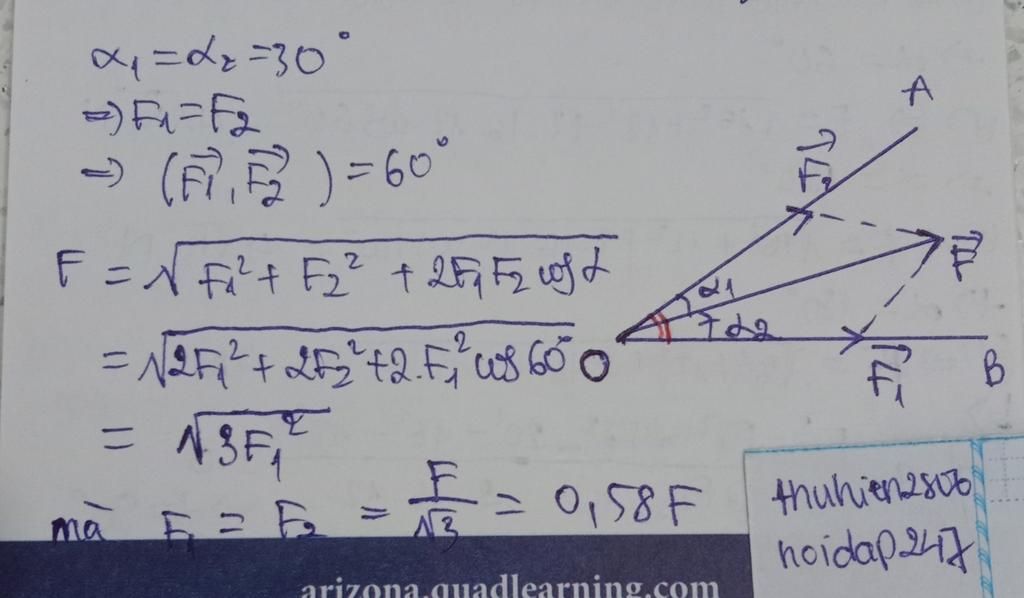 α₁ = α₂ = 30°
⇒ F₁ = F₂
⇒ (F₁⃗, F₂⃗) = 60°
F = √(F₁² + F₂² + 2F₁F₂ cos α)
= √(2F₁² + 2F₂² + 2.F₁² cos 60°)
= √(3F₁²)
mà F₁ = F₂ = F/√3 = 0,58F
A
F₂⃗
F⃗
α₁
α₂
O
F₁⃗
B
thuhien2806
hoidap247
arizona.quadlearning.com